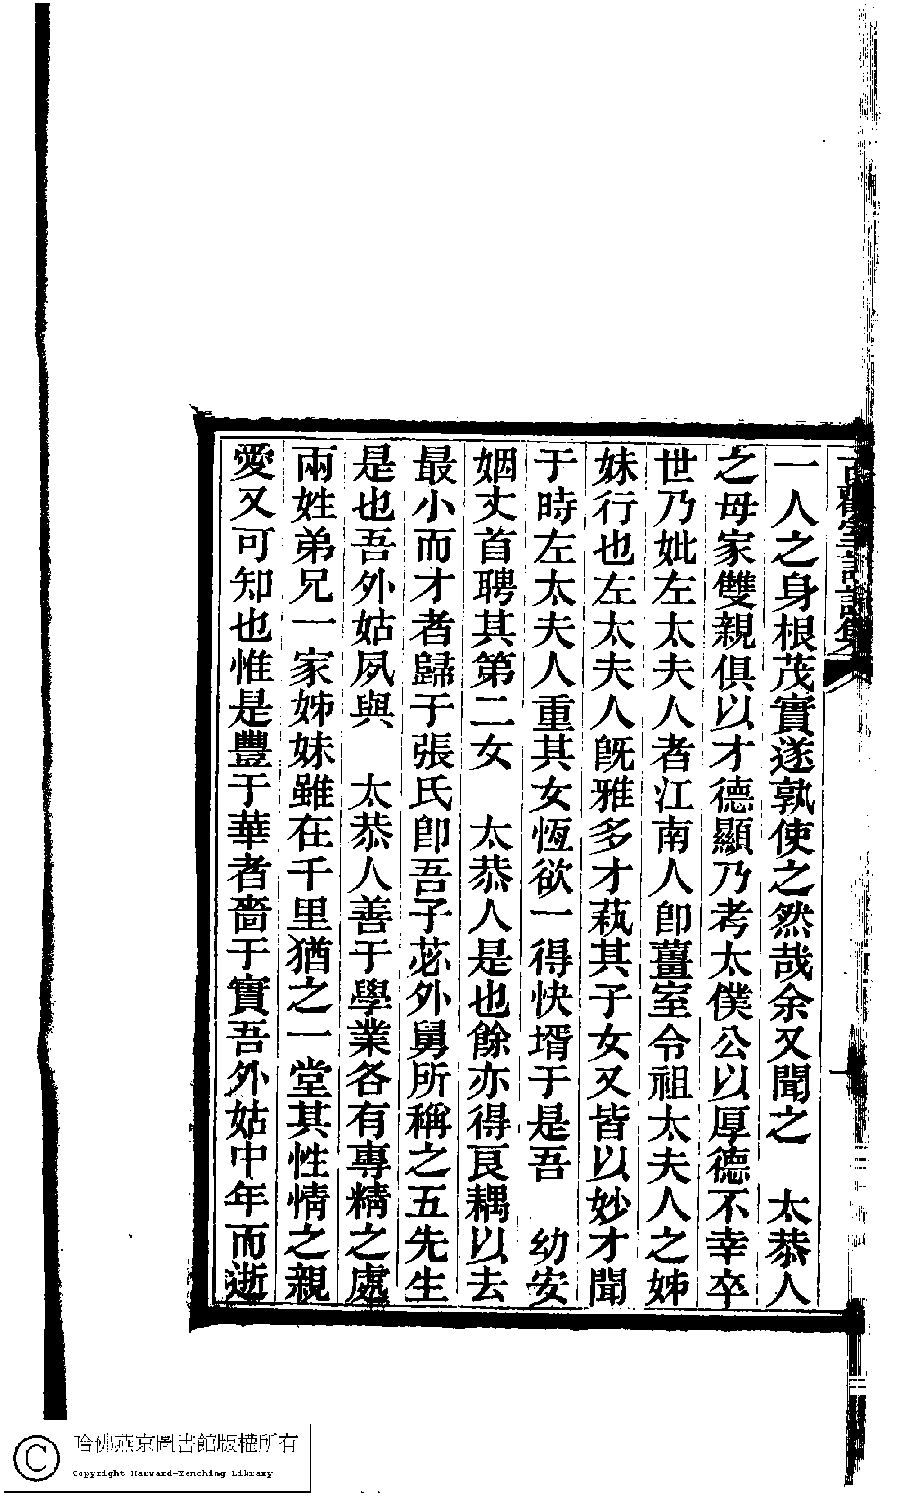 一人之身根茂實遂孰使之然哉余又聞之　太恭人
之母家雙親俱以才德顯乃考太僕公以厚德不幸卒
世乃妣左太夫人者江南人卽薑室令祖太夫人之姊
妹行也左太夫人旣雅多才萟其子女又皆以妙才聞
于時左太夫人重其女恆欲一得快壻于是吾　幼安
姻丈首聘其第二女　太恭人是也餘亦得良耦以去
最小而才者歸于張氏卽吾子苾外舅所稱之五先生
是也吾外姑夙與　太恭人善于學業各有專精之處
兩姓弟兄一家姊妹雖在千里猶之一堂其性情之親
愛又可知也惟是豐于華者嗇于實吾外姑中年而逝
哈佛燕京圖書館版權所有
Copyright Harvard-Yenching Library